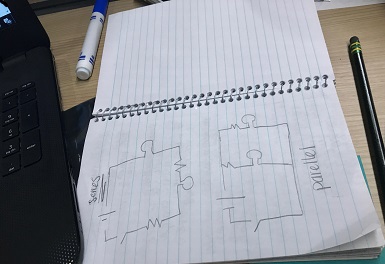 series
parallel